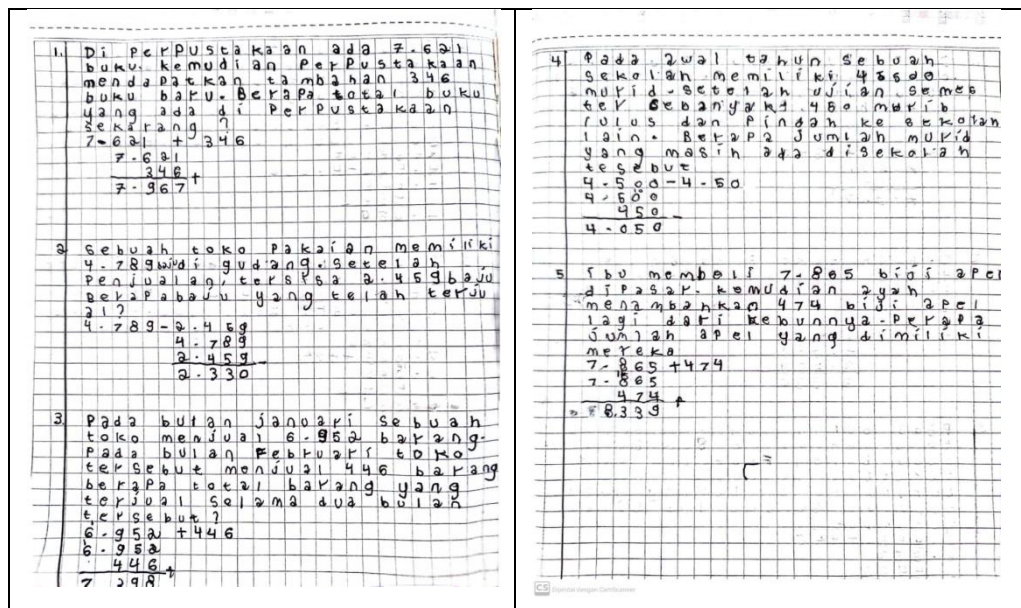 1. Di Perpustakaan ada 7.621
buku. Kemudian Perpustakaan
mendapatkan tambahan 346
buku baru. Berapa total buku
yang ada di Perpustakaan
sekarang ?
7.621 + 346
7.621
346 +
7.967
2 Sebuah toko Pakaian memiliki
4.789 baju di gudang. Setelah
Penjualan, tersisa 2.459 baju
Berapa baju yang telah terju
al?
4.789-2.459
4.789
2.459 -
2.330
3. Pada bulan januari Sebuah
toko menjual 6.952 barang.
Pada bulan Februari toko
tersebut menjual 446 barang
berapa total barang yang
terjual Selama dua bulan
tersebut ?
6.952 +446
6.952
446 +
7 398
4 Pada awal tahun Sebuah
Sekolah memiliki
murid. Setelah ujian Semes
ter Sebanyak 450
lulus dan Pindah ke Sekolah
lain. Berapa Jumlah murid
yang masih ada disekolah
tesebut
4.500-4.50
4.500
450 -
4.050
5 ibu membeli 7.865 biji apel
dipasar. Komudian ayah
menambahkan 474 biji apel
lagi dari kebunnya. Perapa
Jumlah apel yang dimiliki
mereka
7.865 +474
7.865
474 +
8.339
CS